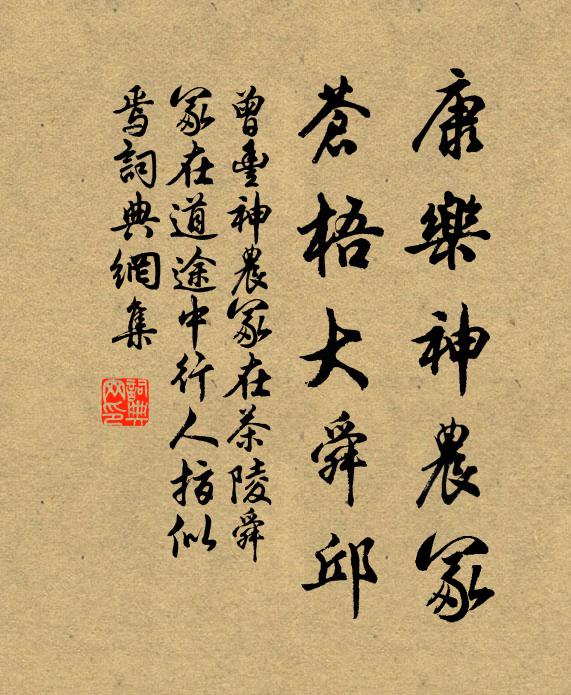 康樂神農冢
蒼梧大舜邱
曾豐神農冢在茶陵舜
冢在道途中行人指似
焉詞典網集
詞典
网印